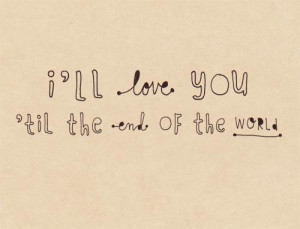 i'll love you
'til the end of the world